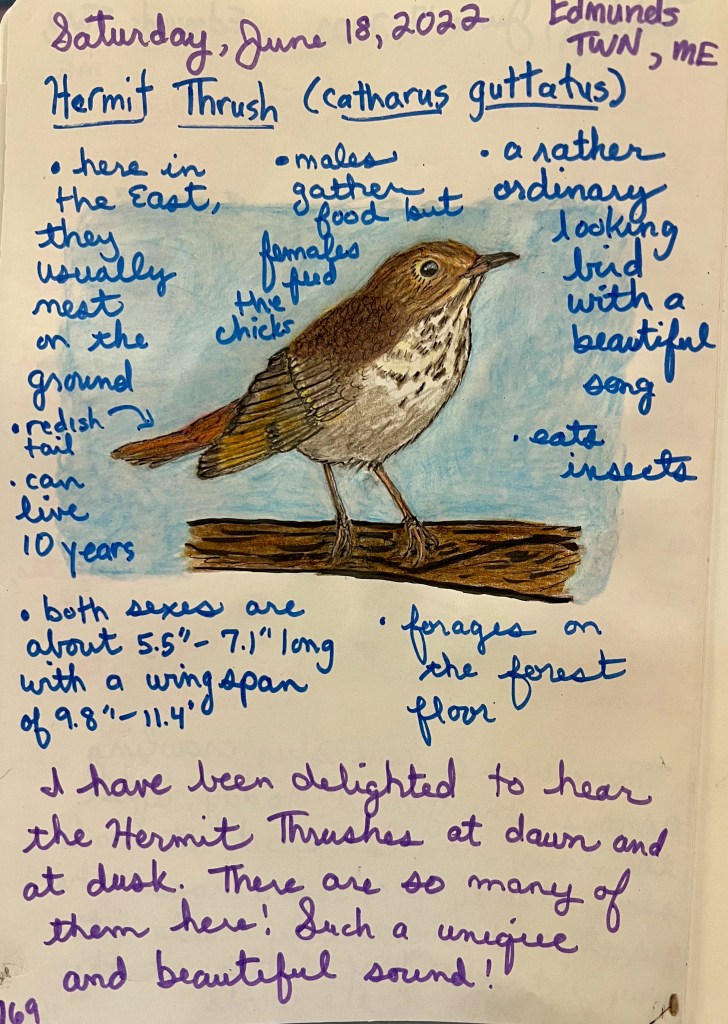 Saturday, June 18, 2022
Edmunds
TWN, ME
Hermit Thrush (catharus guttatus)
• here in
the East,
they
usually
nest
on the
ground
• males
gather
food but
females
feed
the
chicks
• a rather
ordinary
looking
bird
with a
beautiful
song
• redish
tail
• can
live
10 years
• eats
insects
• both sexes are
about 5.5"-7.1" long
with a wingspan
of 9.8"-11.4'
• forages on
the forest
floor
I have been delighted to hear
the Hermit Thrushes at dawn and
at dusk. There are so many of
them here! Such a unique
and beautiful sound!
169